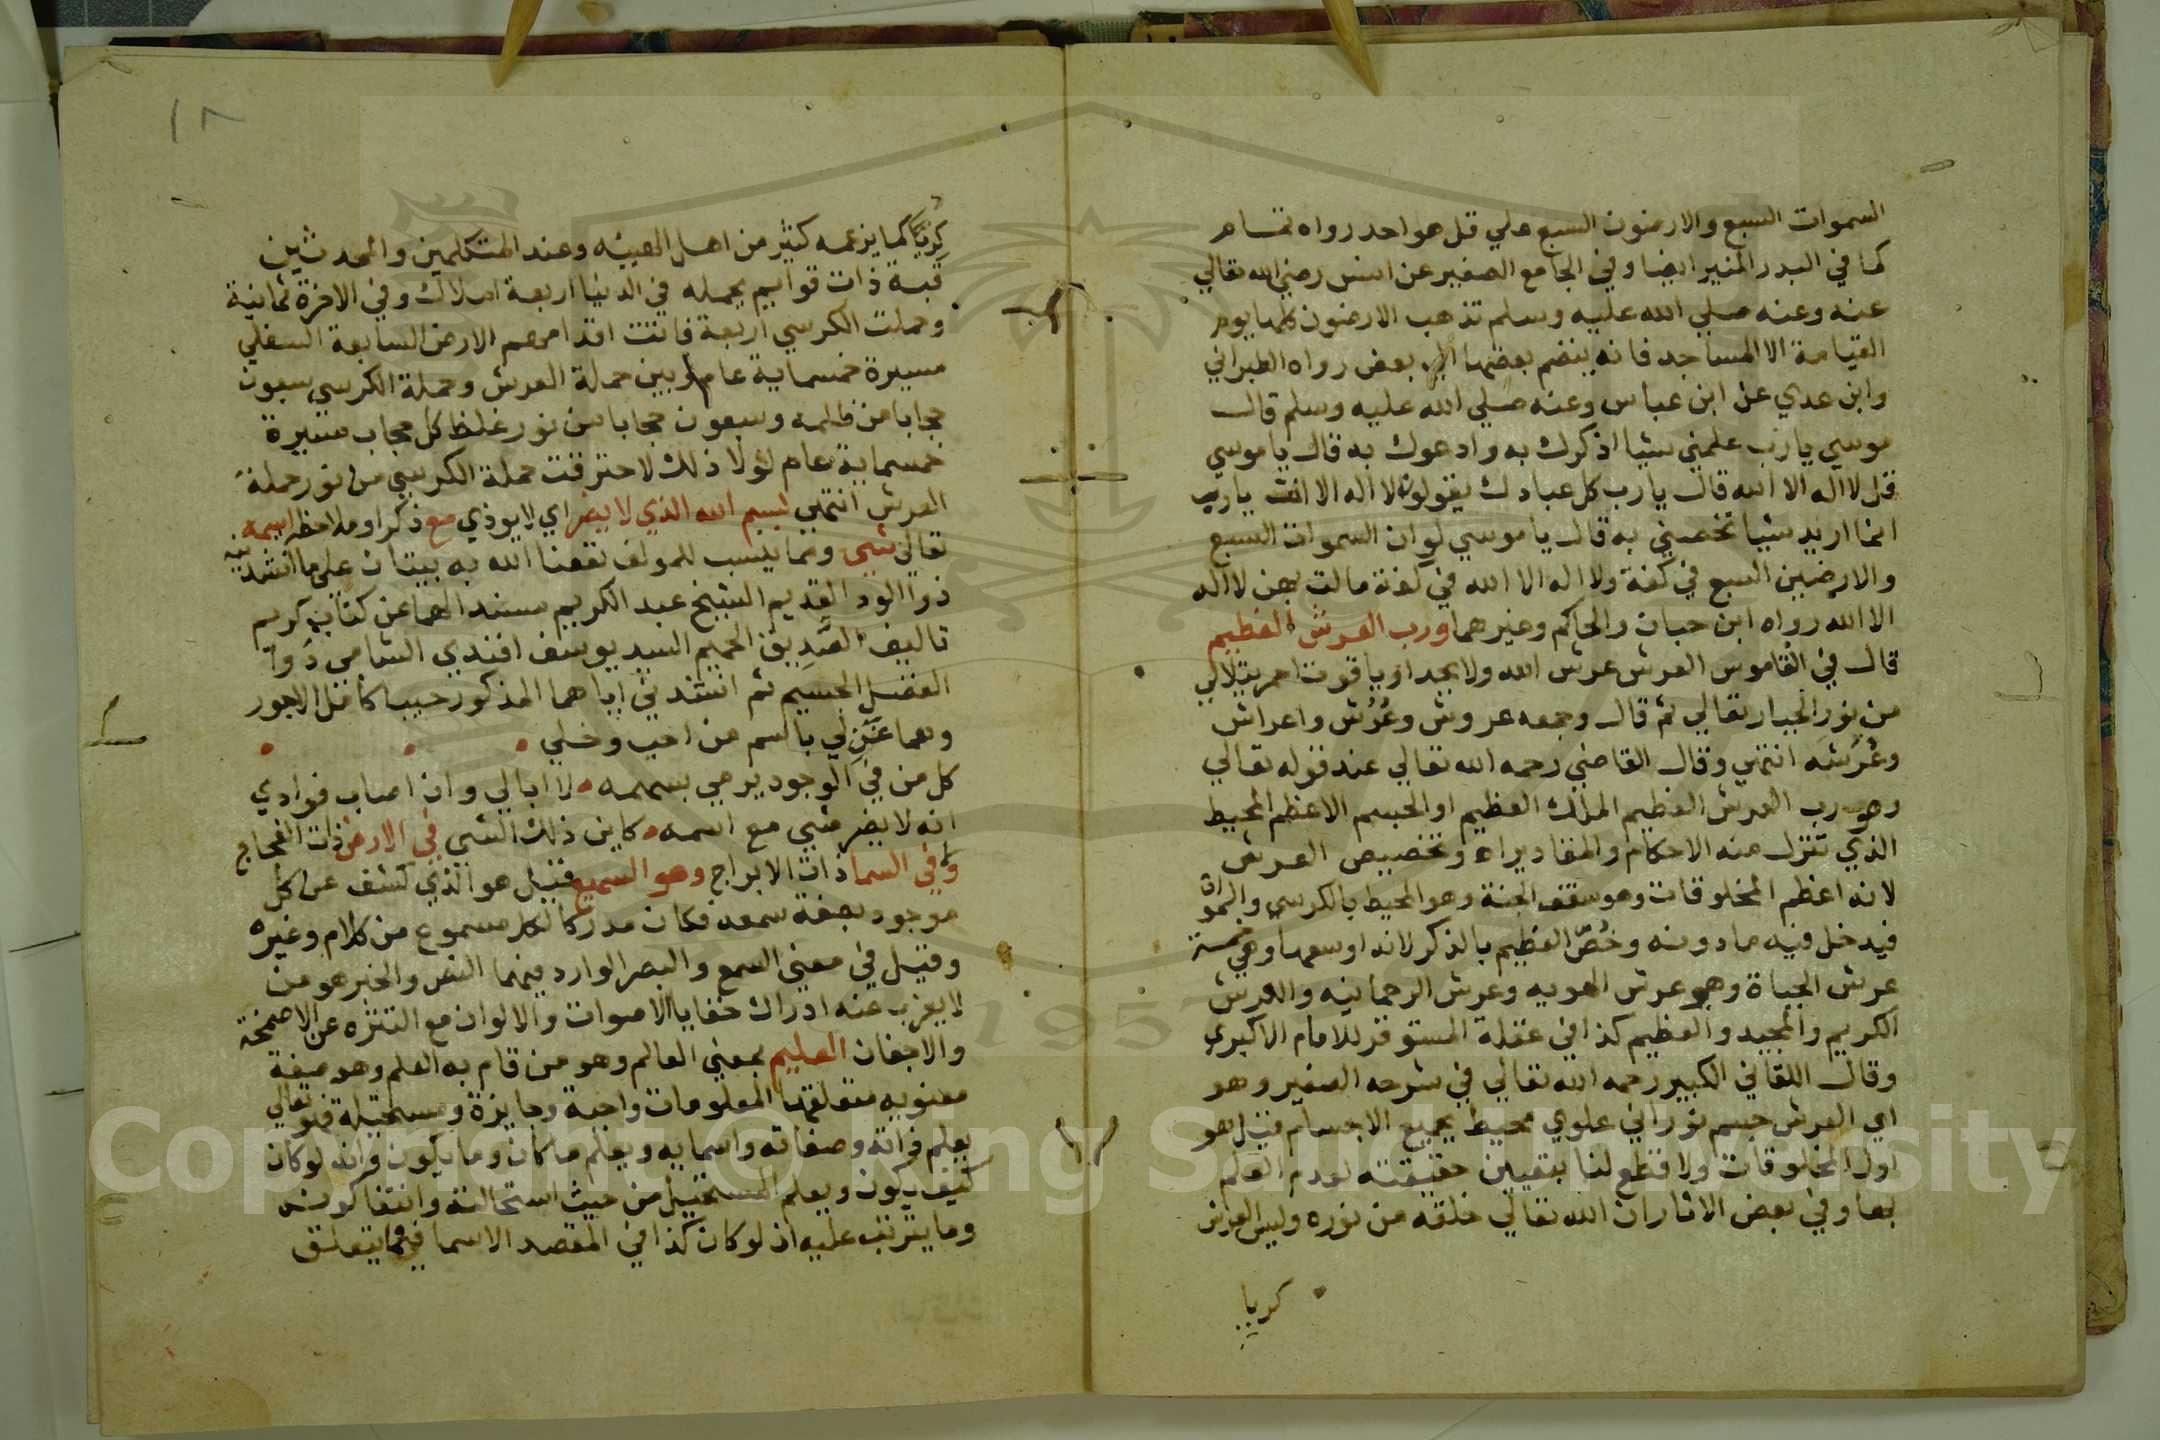 السموات السبع والارضون السبع علي قل هو احد رواه تمام
كما في البدر المنير ايضا وفي الجامع الصغير عن انس رضي الله تعالي
عنه وعنه صلي الله عليه وسلم تذهب الارضون كلها يوم
القيامة الا المساجد فانه ينضم بعضها الي بعض رواه الطبراني
وابن عدي عن ابن عباس وعنه صلي الله عليه وسلم قال
موسي يارب علمني شيا اذكرك به وادعوك به قال يا موسي
قل لا اله الا الله قال يارب كل عبادك يقولون لا اله الا انت يارب
انما اريد شيا تخصني به قال يا موسي لو ان السموات السبع
والارضين السبع في كفة ولا اله الا الله في كفة مالت بهن لا اله
الا الله رواه ابن حبان والحاكم وغيرهما ورب العرش العظيم
قال في القاموس العرش عرش الله ولا يحد او ياقوت احمر يتلالي
من نور الجبار تعالي ثم قال وجمعه عروش وعُرُش واعراش
وعُرَشَه انتهي وقال القاضي رحمه الله تعالي عند قوله تعالي
وهو رب العرش العظيم الملك العظيم او الجسم الاعظم المحيط
الذي تنزل منه الاحكام والمقادير اه وتخصيص العرش
لانه اعظم المخلوقات وهو سقف الجنة وهو المحيط بالكرسي والسموات
فيدخل فيه ما دونه وخُصّ العظيم بالذكر لانه اوسعها وهي خمسة
عرش الحياة وهو عرش الهويه وعرش الرحمانيه والعرش
الكريم والمجيد والعظيم كذا في عقلة المستوفز للامام الاكبري
وقال اللقاني الكبير رحمه الله تعالي في شرحه الصغير وهو
اي العرش جسم نوراني علوي محيط بجميع الاجسام قيل هو
اول المخلوقات ولا قطع لنا بتعيين حقيقته لعدم العلم
بها وفي بعض الاثار ان الله تعالي خلقه من نوره وليس العرش
كريا
١٨
كُرِيًّا كما يزعمه كثير من اهل الهيئه وعند المتكلمين والمحدثين
قبة ذات قوايم يحمله في الدنيا اربعة املاك وفي الاخرة ثمانية
وحملت الكرسي اربعة فاتت اقدامهم الارض السابعة السفلي
مسيرة خمسماية عام وبين حملة العرش وحملة الكرسي سبعون
حجابا من ظلمه وسبعون حجابا من نور غلظ كل حجاب مسيرة
خمسماية عام لولا ذلك لاحترقت حملة الكرسي من نور حملة
العرش انتهي لبسم الله الذي لا يضر اي لا يوذي مع ذكر او ملاحظه اسمه
تعالي شي ومما ينسب للمولف نفعنا الله به بيتان علي ما انشدنيه
ذو الود القديم الشيخ عبد الكريم مسند الهما عن كتاب كريم
تاليف الصديق الحميم السيد يوسف افندي الشامي ذو
الفضل الجسيم ثم انشدني اياهما المذكور حيبا كامل الاجور
وهما عَنِّ لي باسم من احب وخلي
كل من في الوجود يرمي بسهمه لا ابالي وان اصاب فوادي
انه لا يضر شي مع اسمه كاين ذلك الشي في الارض ذات الفجاج
ولا في السما ذات الابراج وهو السميع قيل هو الذي كشف عن كل
موجود بصفة سمعه فكان مدركا لكل مسموع من كلام وغيره
وقيل في معني السمع والبصر الوارد فيهما النص والخبر هو من
لا يعزب عنه ادراك خفايا الاصوات والالوان مع التنزه عن الاصمخة
والاجفان العليم بمعني العالم وهو من قام به العلم وهو صفة
معنويه متعلقها المعلومات واجبة وجايزة ومستحيلة فهو تعالي
يعلم ذاته وصفاته واسمايه ويعلم ما كان وما يكون وانه لو كان
كيف يكون ويعلم المستحيل من حيث استحالته وانتفا كونه
وما يترتب عليه ان لو كان كذا في المقصد الاسما فيما يتعلق
Copyright © King Saud University
1957